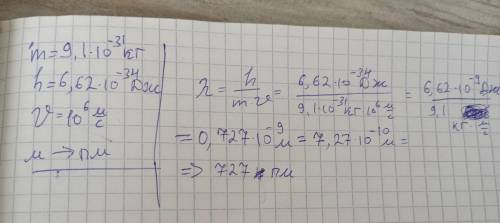 m = 9,1·10⁻³¹ кг
h = 6,62·10⁻³⁴ Дж
V = 10⁶ м/с
м → пм
λ = h/mv = 6,62·10⁻³⁴ Дж / 9,1·10⁻³¹ кг 10⁶ м/с = 6,62·10⁻⁹ Дж / 9,1 кг м/с
= 0,727·10⁻⁹ м = 7,27·10⁻¹⁰ м =
=> 727 пм